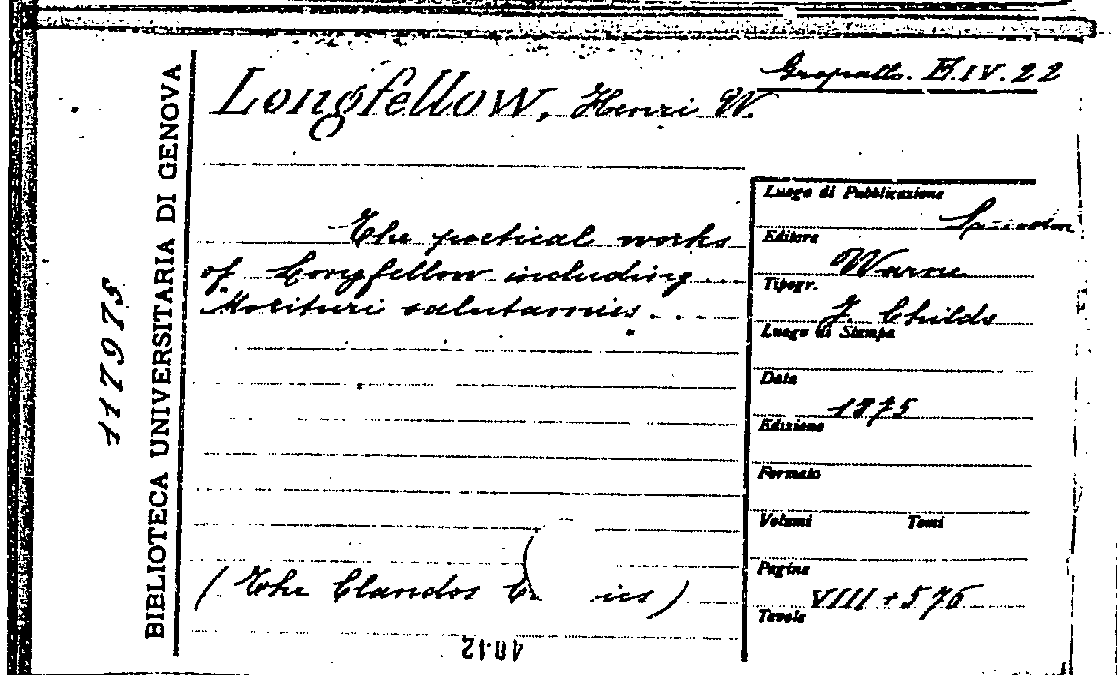 Gropall. E.IV.22
Longfellow, Henri W.
The poetical works
of Longfellow including
Morituri salutamus . . .
(The Clandos
Luogo di Pubblicazione
London
Editore
Warne
Tipogr.
J. Childs
Luogo di Stampa
Data
1875
Edizione
Formato
Volumi Tomi
Pagine
VIII + 576
Tavole
BIBLIOTECA UNIVERSITARIA DI GENOVA
117975